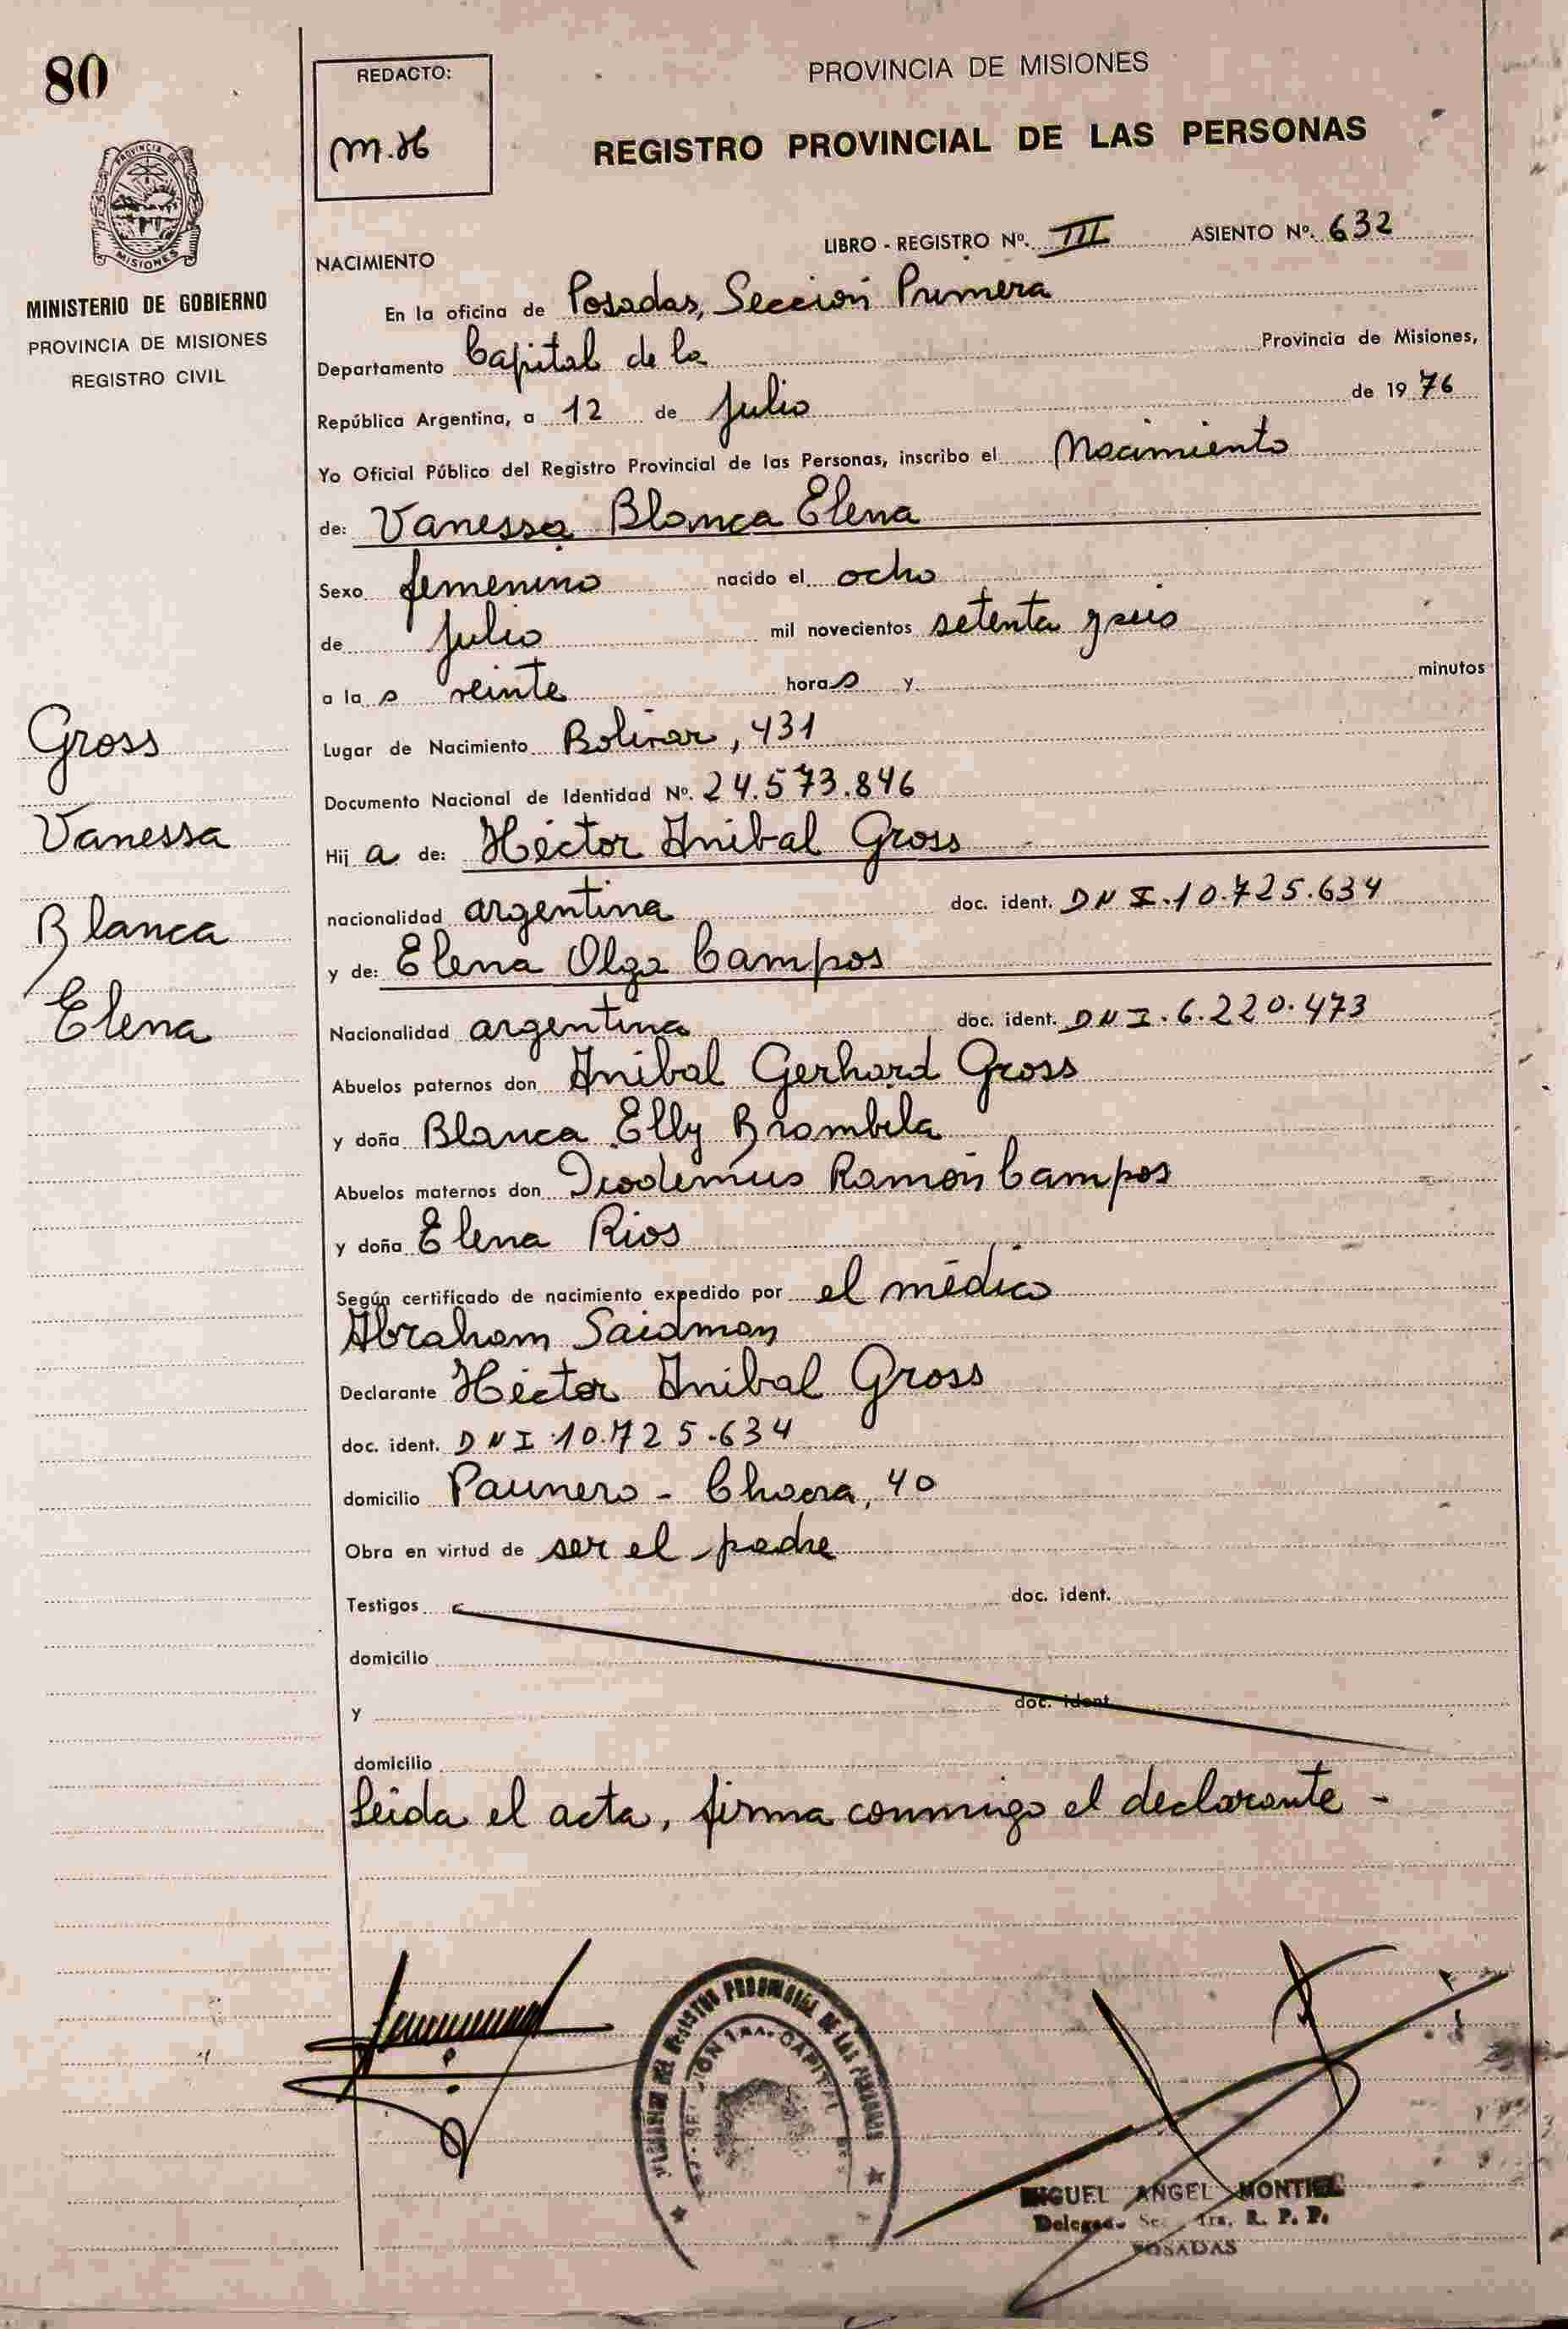 80
REDACTO:
M.H
PROVINCIA DE MISIONES
REGISTRO PROVINCIAL DE LAS PERSONAS
PROVINCIA DE
MISIONES
MINISTERIO DE GOBIERNO
PROVINCIA DE MISIONES
REGISTRO CIVIL
LIBRO - REGISTRO Nº. III ASIENTO Nº. 632
NACIMIENTO
En la oficina de Posadas, Sección Primera
Departamento Capital de la Provincia de Misiones,
República Argentina, a 12 de Julio de 1976
Yo Oficial Público del Registro Provincial de las Personas, inscribo el Nacimiento
de: Vanessa Blanca Elena
Sexo femenino nacido el ocho
de Julio mil novecientos setenta y seis
a las veinte horas y minutos
Lugar de Nacimiento Bolivar, 431
Documento Nacional de Identidad Nº. 24.573.846
Hija de: Héctor Anibal Gross
nacionalidad argentina doc. ident. DNI.10.725.634
y de: Elena Olga Campos
Nacionalidad argentina doc. ident. DNI.6.220.473
Abuelos paternos don Anibal Gerhard Gross
y doña Blanca Elly Brombila
Abuelos maternos don Ramón Campos
y doña Elena Rios
Según certificado de nacimiento expedido por el médico
Abraham Saidman
Declarante Héctor Anibal Gross
doc. ident. DNI.10.725.634
domicilio Paunero - Chacra, 40
Obra en virtud de ser el padre
Testigos doc. ident.
domicilio
y doc. ident.
domicilio
Leida el acta, firma conmigo el declarante -
Gross
Vanessa
Blanca
Elena
DEL REGISTRO PROVINCIAL DE LAS PERSONAS
1ra. CAPITAL
MIGUEL ANGEL MONTIEL
Delegado Sec. 1ra. R. P. P.
POSADAS